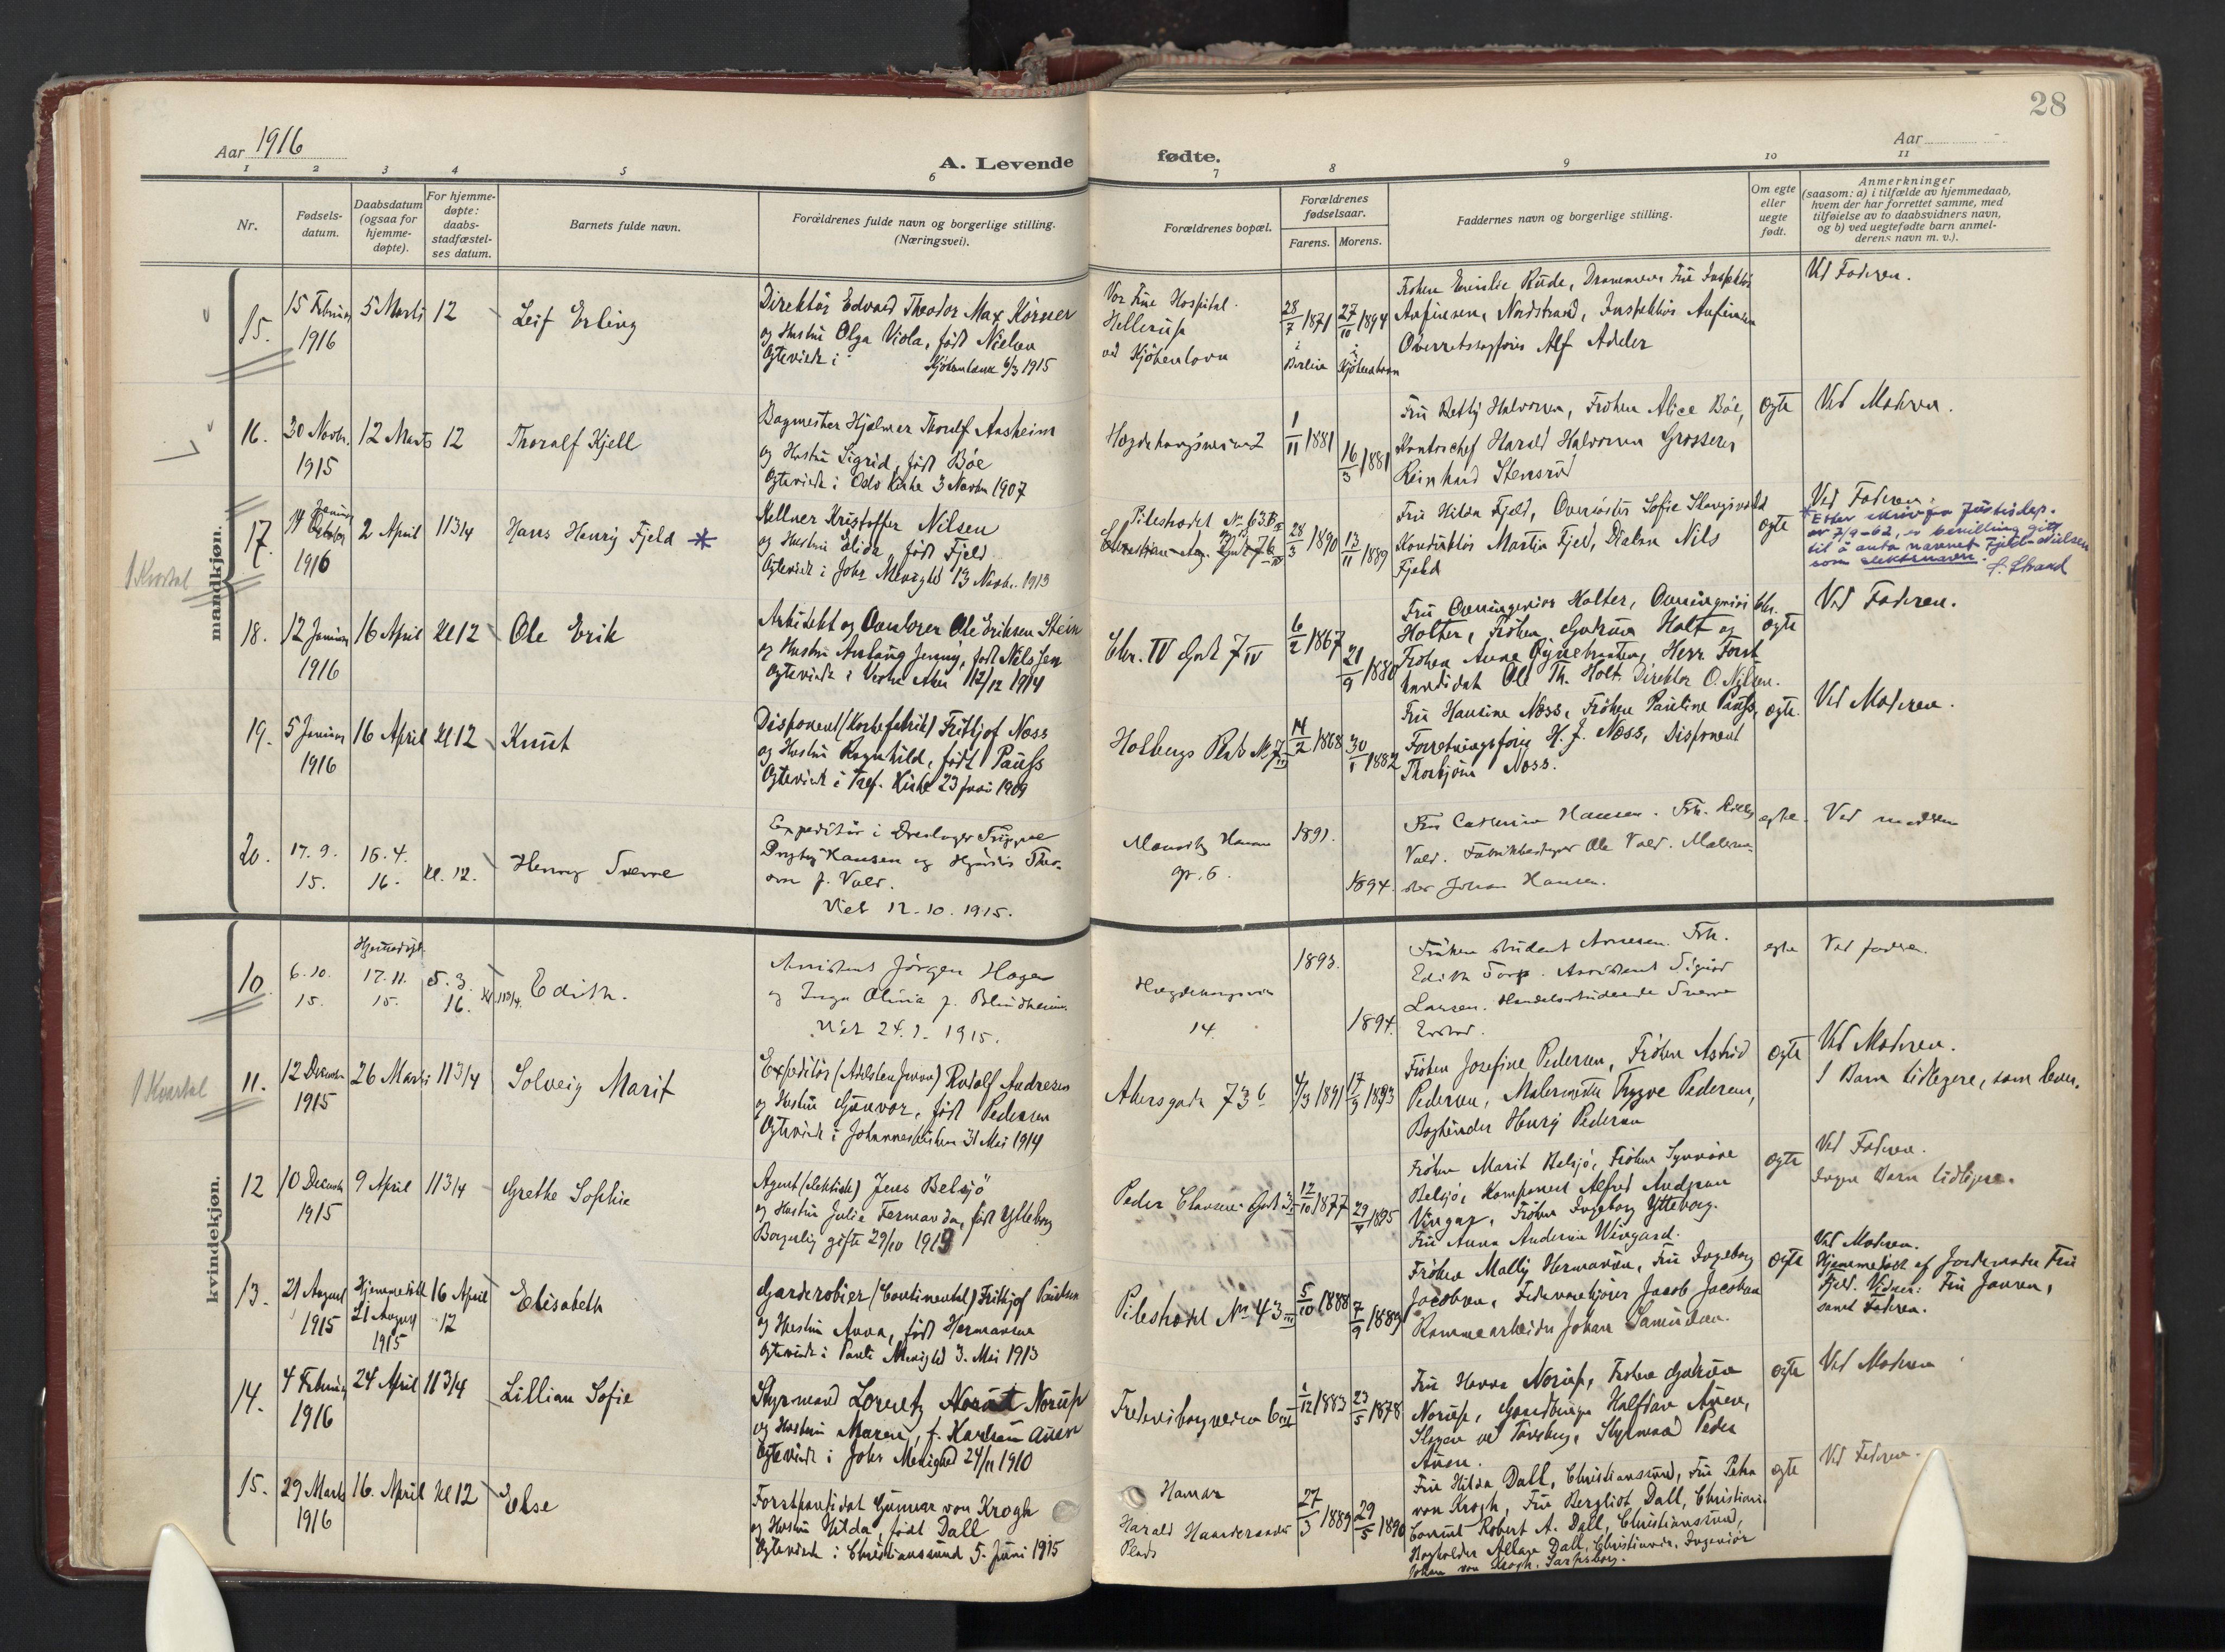 28
Aar 1916
Aar
A. Levende
fødte.
1 2 3 4 5 6 7 8 9 10 11
Nr.
Fødsels-
datum.
Daabsdatum
(ogsaa for
hjemme-
døpte).
For hjemme-
døpte:
daabs-
stadfæstel-
ses datum.
Barnets fulde navn.
Forældrenes fulde navn og borgerlige stilling.
(Næringsvei).
Forældrenes bopæl.
Forældrenes
fødselsaar.
Farens. Morens.
Faddernes navn og borgerlige stilling.
Om egte
eller
uegte
født.
Anmerkninger
(saasom: a) i tilfælde av hjemmedaab,
hvem der har forrettet samme, med
tilføielse av to daabsvidners navn,
og b) ved uegtefødte barn anmel-
derens navn m. v.).
mandkjøn.
15.
15 Februar
1916
5 Marts
12
Leif Erling
Direktör Edvard Theodor Max Körner
og Hustru Olga Viola, født Nielsen
Ögteviede i Kjöbenhavn 6/3 1915
Vor Frue Hospital.
Hellerup
ved Kjöbenhavn
28/7 1871
i
Berlin
27/10 1894
i
Kjöbenhavn
Fröken Emilie Rude, Drammen, Fru Inspektör
Anfinsen, Nordstrand, Inspektör Anfinsen
Overretssagförer Alf Adeler
Ved Faderen.
16.
30 Novbr.
1915
12 Marts
12
Thoralf Kjell
Bagmester Hjalmar Thoralf Aasheim
og Hustru Sigrid, født Böe
Ögteviede i Oslo Kirke 3 Novbr 1907
1/11 1881
16/3 1881
Fru Betty Halvorsen, Fröken Alice Böe,
Kontorchef Harald Halvorsen Grosserer
Reinhard Stensrud
ögte
Ved Moderen.
1 Kvartal
17.
14 Januar
1916
2 April
11 3/4
Hans Henry Fjeld *
Kellner Kristoffer Nilsen
og Hustru Elida, født Fjeld
Ögteviede i Johs Menighed 13 Novbr. 1913
Pilestrædet No 63
28/3 1890
13/11 1889
Fru Hilda Fjeld,
Konduktör Martin Fjeld, Diakon Nils
Fjeld
ögte
Ved Faderen.
* Etter skriv fra Justisdep.
av 7/9-62, er bevilling gitt
til å anta navnet Fjeld-Nielsen
som slektsnavn.
S. Strand
18.
12 Januar
1916
16 April
Kl 12
Ole Erik
Arkitekt og Overlærer Ole Eriksen Stein
og Hustru Aslaug Jenny, født Nilssen
Ögteviede i Vestre Aker 12/12 1914
Chr. IV Gade 7 IV
6/2 1867
21/9 1880
Fru Overingeniör Holter, Overingeniör Chr.
Holter, Fröken Gudrun Holt og
Fröken Anna, Herr Forst
kandidat Ole Th. Holt. Direktör O. Nilsen.
ögte
Ved Faderen.
19.
5 Januar
1916
16 April
Kl 12
Knut
Disponent (Korkefabrik) Frithjof Næss
og Hustru Ragnhild, født Pauss
Ögteviede i Tref. Kirke 23 Juni 1909
Holbergs Plads No 7
14/2 1868
30/1 1882
Fru Hansine Næss, Fröken Pauline Pauss,
Forretningsförer H. J. Næss, Disponent
Thorbjörn Næss.
ögte.
Ved Moderen.
20.
17. 9.
15.
16. 4.
16.
Kl. 12.
Henry Sverre
Expeditör i Trygve
Hansen og Hjördis
f. Vold.
Viet 12. 10. 1915.
gr. 6.
1891.
1894.
Fru Cathrine Hansen. Frk.
Vold. Fabrikbestyrer Ole Vold. Malerme-
ster Johan Hansen.
egte.
Ved moderen
kvindekjøn.
10.
6. 10.
15.
Hjemmedøpt
17. 11.
15.
5. 3.
16.
Kl. 11 3/4.
Edith.
Assistent Jörgen Hagen
og Inga Olivia f. Blindheim.
Viet 24. 1. 1915.
14.
1893.
1894.
Fröken student Arnesen. Frk.
Edith Torp. Assistent Sigurd
Larsen. Handelsstuderende Sverre
egte
Ved faderen.
1 Kvartal
11.
12 Decembr
1915
26 Marts
11 3/4
Solveig Marit
Expeditör (Adelsten Jensen) Rudolf Andresen
og Hustru Gunvor, født Pedersen
Ögteviede i Johanneskirken 31 Mai 1914
Akersgade 73 b
4/3 1891
17/3 1893
Fröken Josefine Pedersen, Fröken Astrid
Pedersen, Malermester Trygve Pedersen,
Bogbinder Henry Pedersen
ögte
Ved Moderen.
1 Barn tidligere, som lever.
12
10 Decembr
1915
9 April
11 3/4
Grethe Sophie
Agent (elektrisk) Jens Belsjö
og Hustru Julie Fernanda, født Ytteborg
Borgerlig gifte 29/10 1913
12/10 1877
29/4 1895
Fröken Marit Belsjö, Fröken Synnöve
Belsjö, Komponent Alfred Andersen
Vingar, Fröken Ingeborg Ytteborg.
Fru Anna Andersen Wingard.
ögte
Ved Faderen.
Ingen Barn tidligere.
13.
21 August
1915
Hjemmedøbt
21 August
1915
16 April
12
Elisabeth
Garderobier (Continental) Frithjof Paulsen
og Hustru Anna, født Hermansen
Ögteviede i Pauli Menighed 3. Mai 1913
Pilestrædet No 43 III
5/10 1888
7/9 1889
Fröken Mally Hermansen, Fru Ingeborg
Jacobsen, Jacob Jacobsen
Rammearbeider Johan Samuelsen.
ögte
Ved Moderen.
Hjemmedøbt af Jordemoder Fru
Fjeld. Vidner: Fru Jansen,
samt Faderen.
14.
4 Februar
1916
24 April
11 3/4
Lillian Sofie
Styrmand Lorentz Norup
og Hustru Maren, f. Karlsen Auen
Ögteviede i Johs Menighed 24/11 1910
Fredensborgveien 6
1/12 1883
23/5 1878
Fru Hanna Norup, Fröken Gudrun
Norup, Gaardbruger Halfdan Auen,
Slagen ved Tönsberg, Styrmand Peder
Auen.
ögte
Ved Moderen
15.
29 Marts
1916
16. April
Kl 12
Else
Forstkandidat Gunnar von Krogh
og Hustru Hilda, født Dall
Ögteviede i Christianssund 5. Juni 1915
Hamar
Harald Haarderaades
Plads
27/3 1889
29/5 1890
Fru Hilda Dall, Christianssund, Fru Petra
von Krogh, Fru Bergliot Dall, Christiania
Consul Robert A. Dall, Christianssund,
Bogholder Dall, Christiania, Ingeniör
Johan von Krogh, Sarpsborg.
ögte
Ved Faderen.